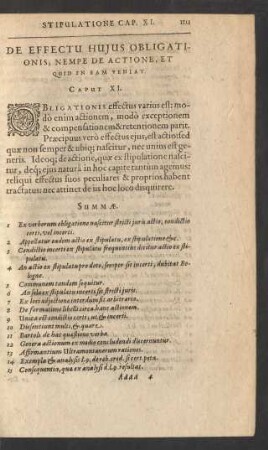 STIPULATIONE CAP. XI.
DE EFFECTU HUJUS OBLIGATI-
ONIS, NEMPE DE ACTIONE, ET
QUID IN EAM VENIAT.
CAPUT XI.
OBLIGATIONIS effectus varius est: mo-
dò enim actionem, modò exceptionem
& compensationem & retentionem parit.
Præcipuus verò effectus ejus, est actio: sed
quæ non semper & ubiq; nascitur, nec unius est ge-
neris. Ideoq; de actione, quæ ex stipulatione nasci-
tur, deq; ejus natura in hoc capite tantùm agemus:
reliqui effectus suos peculiares & proprios habent
tractatus: nec attinet de iis hoc loco disquirere.
SUMMÆ.
1 Ex verborum obligatione nascitur stricti juris actio, condictio
certi, vel incerti.
2 Appellatur eadem actio ex stipulatu, ex stipulatione &c.
3 Condictio incerti ex stipulatu frequentius dicitur actio ex sti-
pulatu.
4 An actio ex stipulatu pro dote, semper sit incerti, dubitat Bo-
logne.
5 Communem tandem sequitur.
6 An sola ex stipulatu incerti sit stricti juris.
7 Ex loci adjectione interdum fit arbitraria.
8 De formatione libelli circa hanc actionem.
9 Unica est condictio certi, & incerti.
10 Dissentiunt multi, & quare.
11 Bartoli de hac quæstione verba.
12 Genera actionum ex modo concludendi discernuntur.
13 Affirmantium Ultramontanorum rationes.
14 Exempla & analysis l. 9. de reb. cred. si cert. peta.
15 Consequentia, quæ ex analysi d. l. 9. resultat.
Aaaa 4